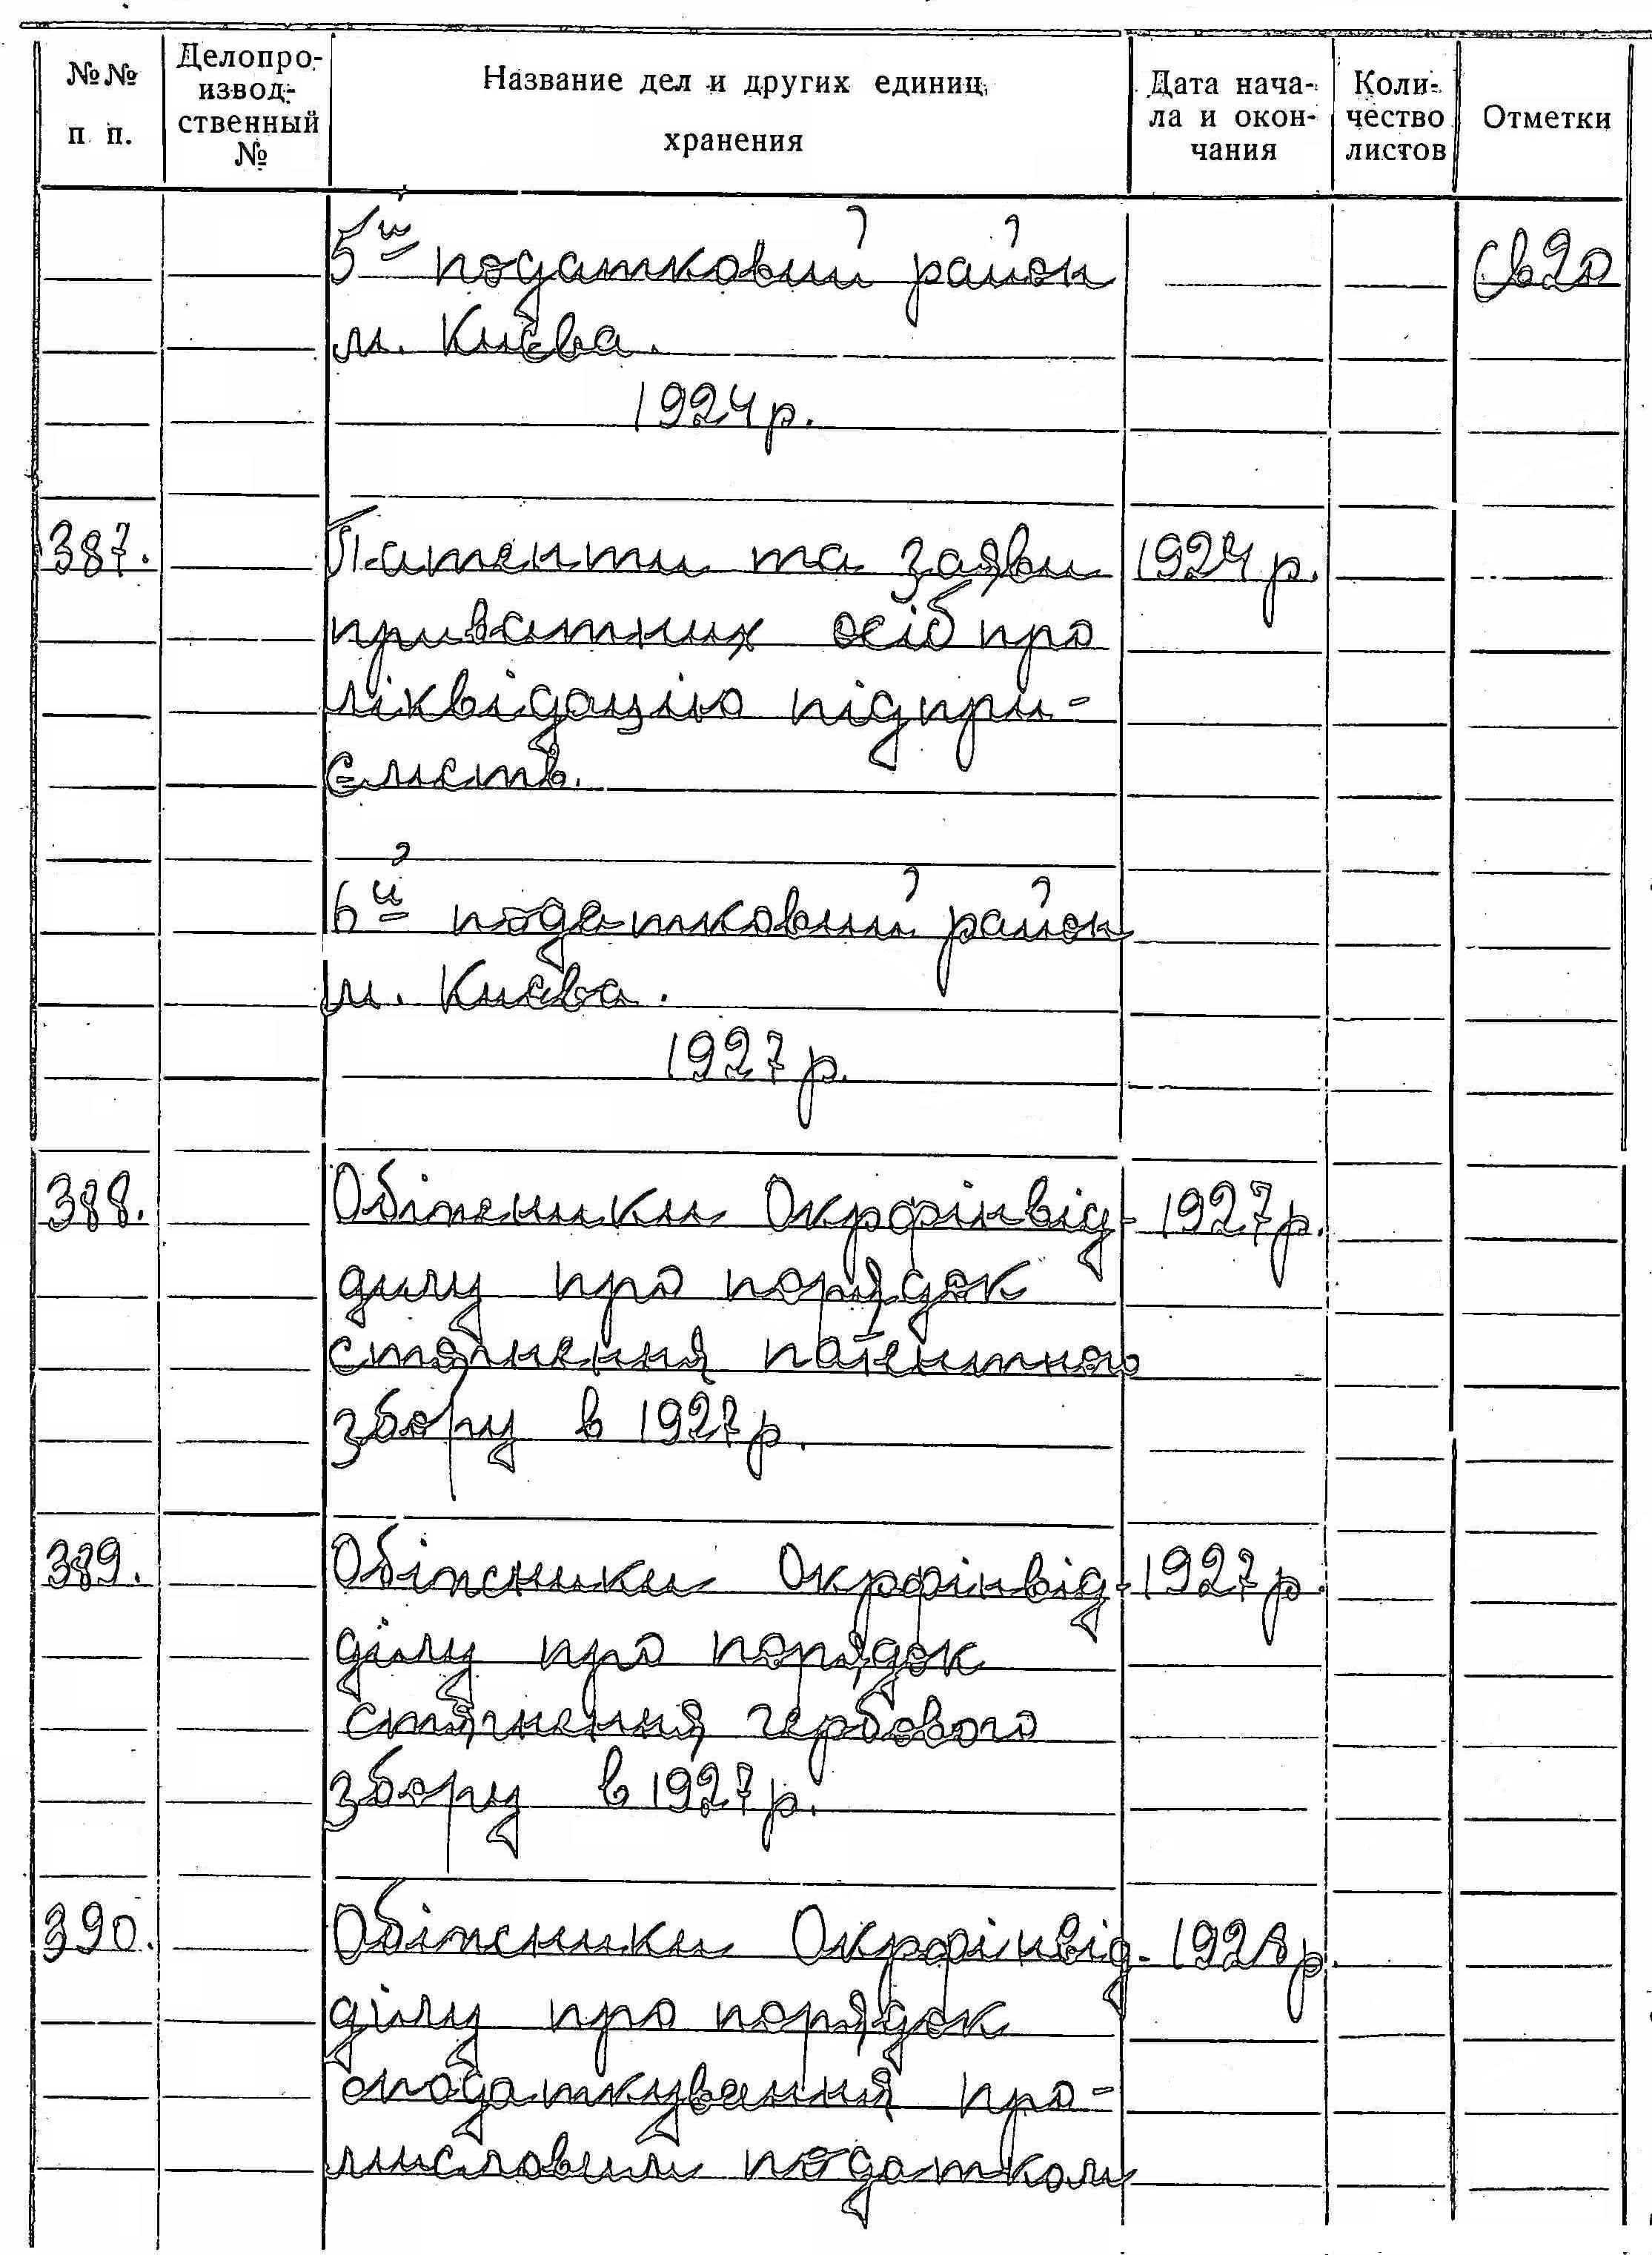 №№ п. п. Делопро-извод-ственный № Название дел и других единиц хранения Дата нача-ла и окон-чания Коли-чество листов Отметки
5й податковий район
м. Києва.
1924р.
387. Патенти та заяви 1924р.
приватних осіб про
ліквідацію підпри-
ємств.
6й податковий район
м. Києва.
1927р.
388. Обіжники Окрфінвід- 1927р.
ділу про порядок
стягнення патентного
збору в 1927р.
389. Обіжники Окрфінвід- 1927р.
ділу про порядок
стягнення гербового
збору в 1927р.
390. Обіжники Окрфінвід- 1928р.
ділу про порядок
оподаткування про-
мисловим податком